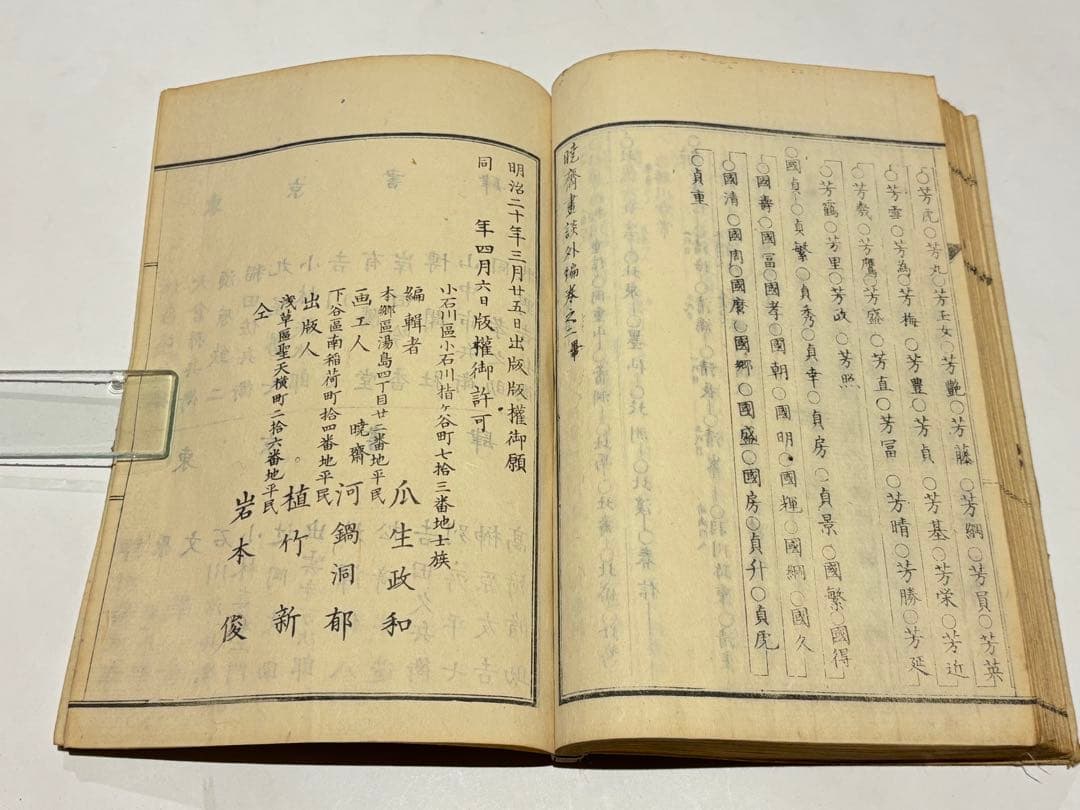 ○芳虎○芳丸○芳玉女○芳艶○芳藤○芳綱○芳員○芳英
○芳雪○芳為○芳梅○芳豊○芳貞○芳基○芳栄○芳近
○芳幾○芳鷹○芳盛○芳直○芳冨○芳晴○芳勝○芳延
○芳鶴○芳里○芳政○芳照
○國貞○貞繁○貞秀○貞幸○貞房○貞景○國繁○國得
○國壽○國冨○國孝○國朝○國明○國輝○國綱○國久
○國清○國周○國麿○國郷○國盛○國房○貞升○貞虎
○貞重
暁齋畫談外編巻之二畢
明治二十年三月廿五日出版版權御願
同年四月六日版權御許可
小石川區小石川指ヶ谷町七拾三番地士族
編輯者 瓜生政和
本郷區湯島四丁目廿二番地平民
画工人 暁齋 河鍋洞郁
下谷區南稲荷町拾四番地平民
出版人 植竹新
浅草區聖天横町二拾六番地平民
仝 岩本俊